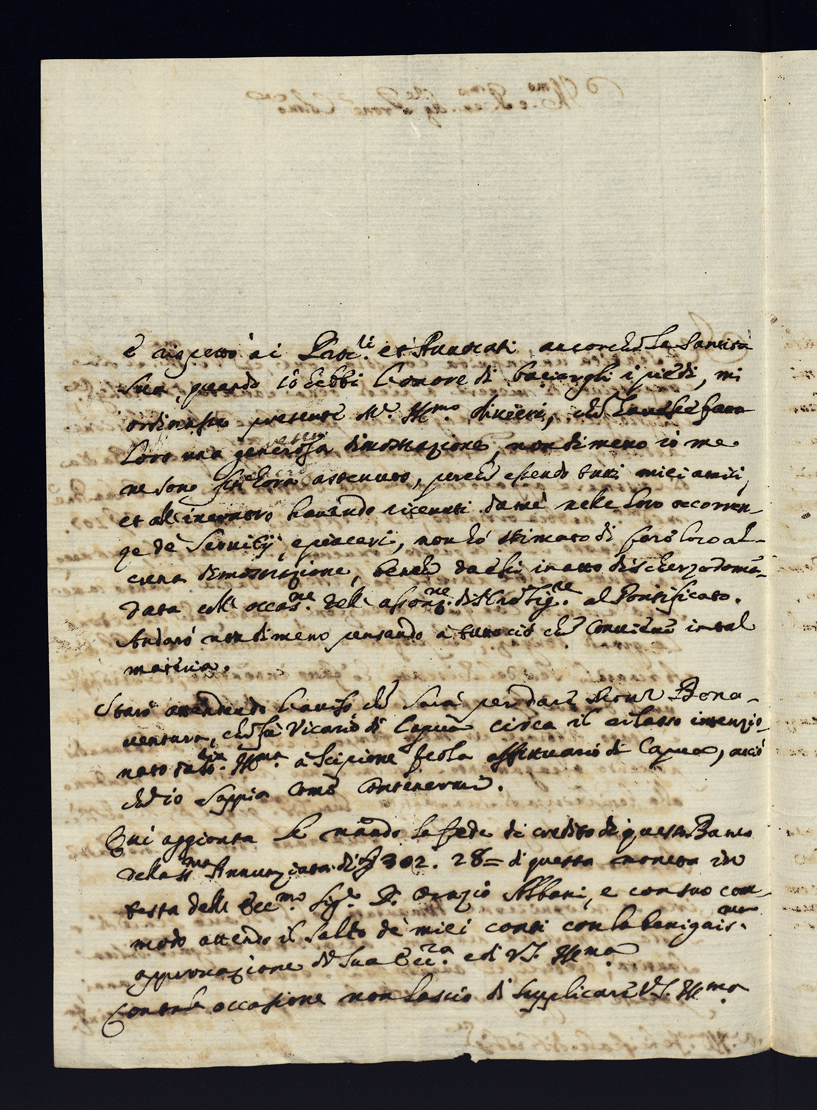 e rispetto a i Proc.ri et Avvocati, ancorche la Santità
Sua, quando io hebbi l'onore di baciargli i piedi, mi
ordinasse presente Mr. Ill.mo che
loro una generosa dimostrazione, nondimeno io me
ne sono sin'hora astenuto, perche essendo tutti miei amici,
et all'incontro havendo ricevuti da me nelle loro occorren-
ze de Servitij, e piaceri, non hò stimato di fare loro al-
cuna dimostrazione, benche da chi in atto di scherzo doman-
data coll'occas.ne dell'assonz.ne di N.ro Sig.re al Pontificato.
Andarò nondimeno pensando a tutto ciò che conviene in tal
materia.
Starò attendendo l'aviso che sarà per dare Mons.r Bona-
ventura, che fù Vicario di Capua circa il rilasso intenzio-
nato da V.S. Ill.ma à Scipione feola affittuario di Capua, acciò
ch'io sappia come contenermi.
Qui aggionta le mando la fede di credito di questo Banco
della SS.ma Annunziata di 302. 28= di questa moneta in
testa dell'Ecc.mo Sig.r D. Orazio Albani, e con suo com-
modo attendo il saldo de miei conti con la benignis.ma
approvazione di Sua Ecc.za e di V.S. Ill.ma
Con tale occasione non lascio di supplicare V.S. Ill.ma